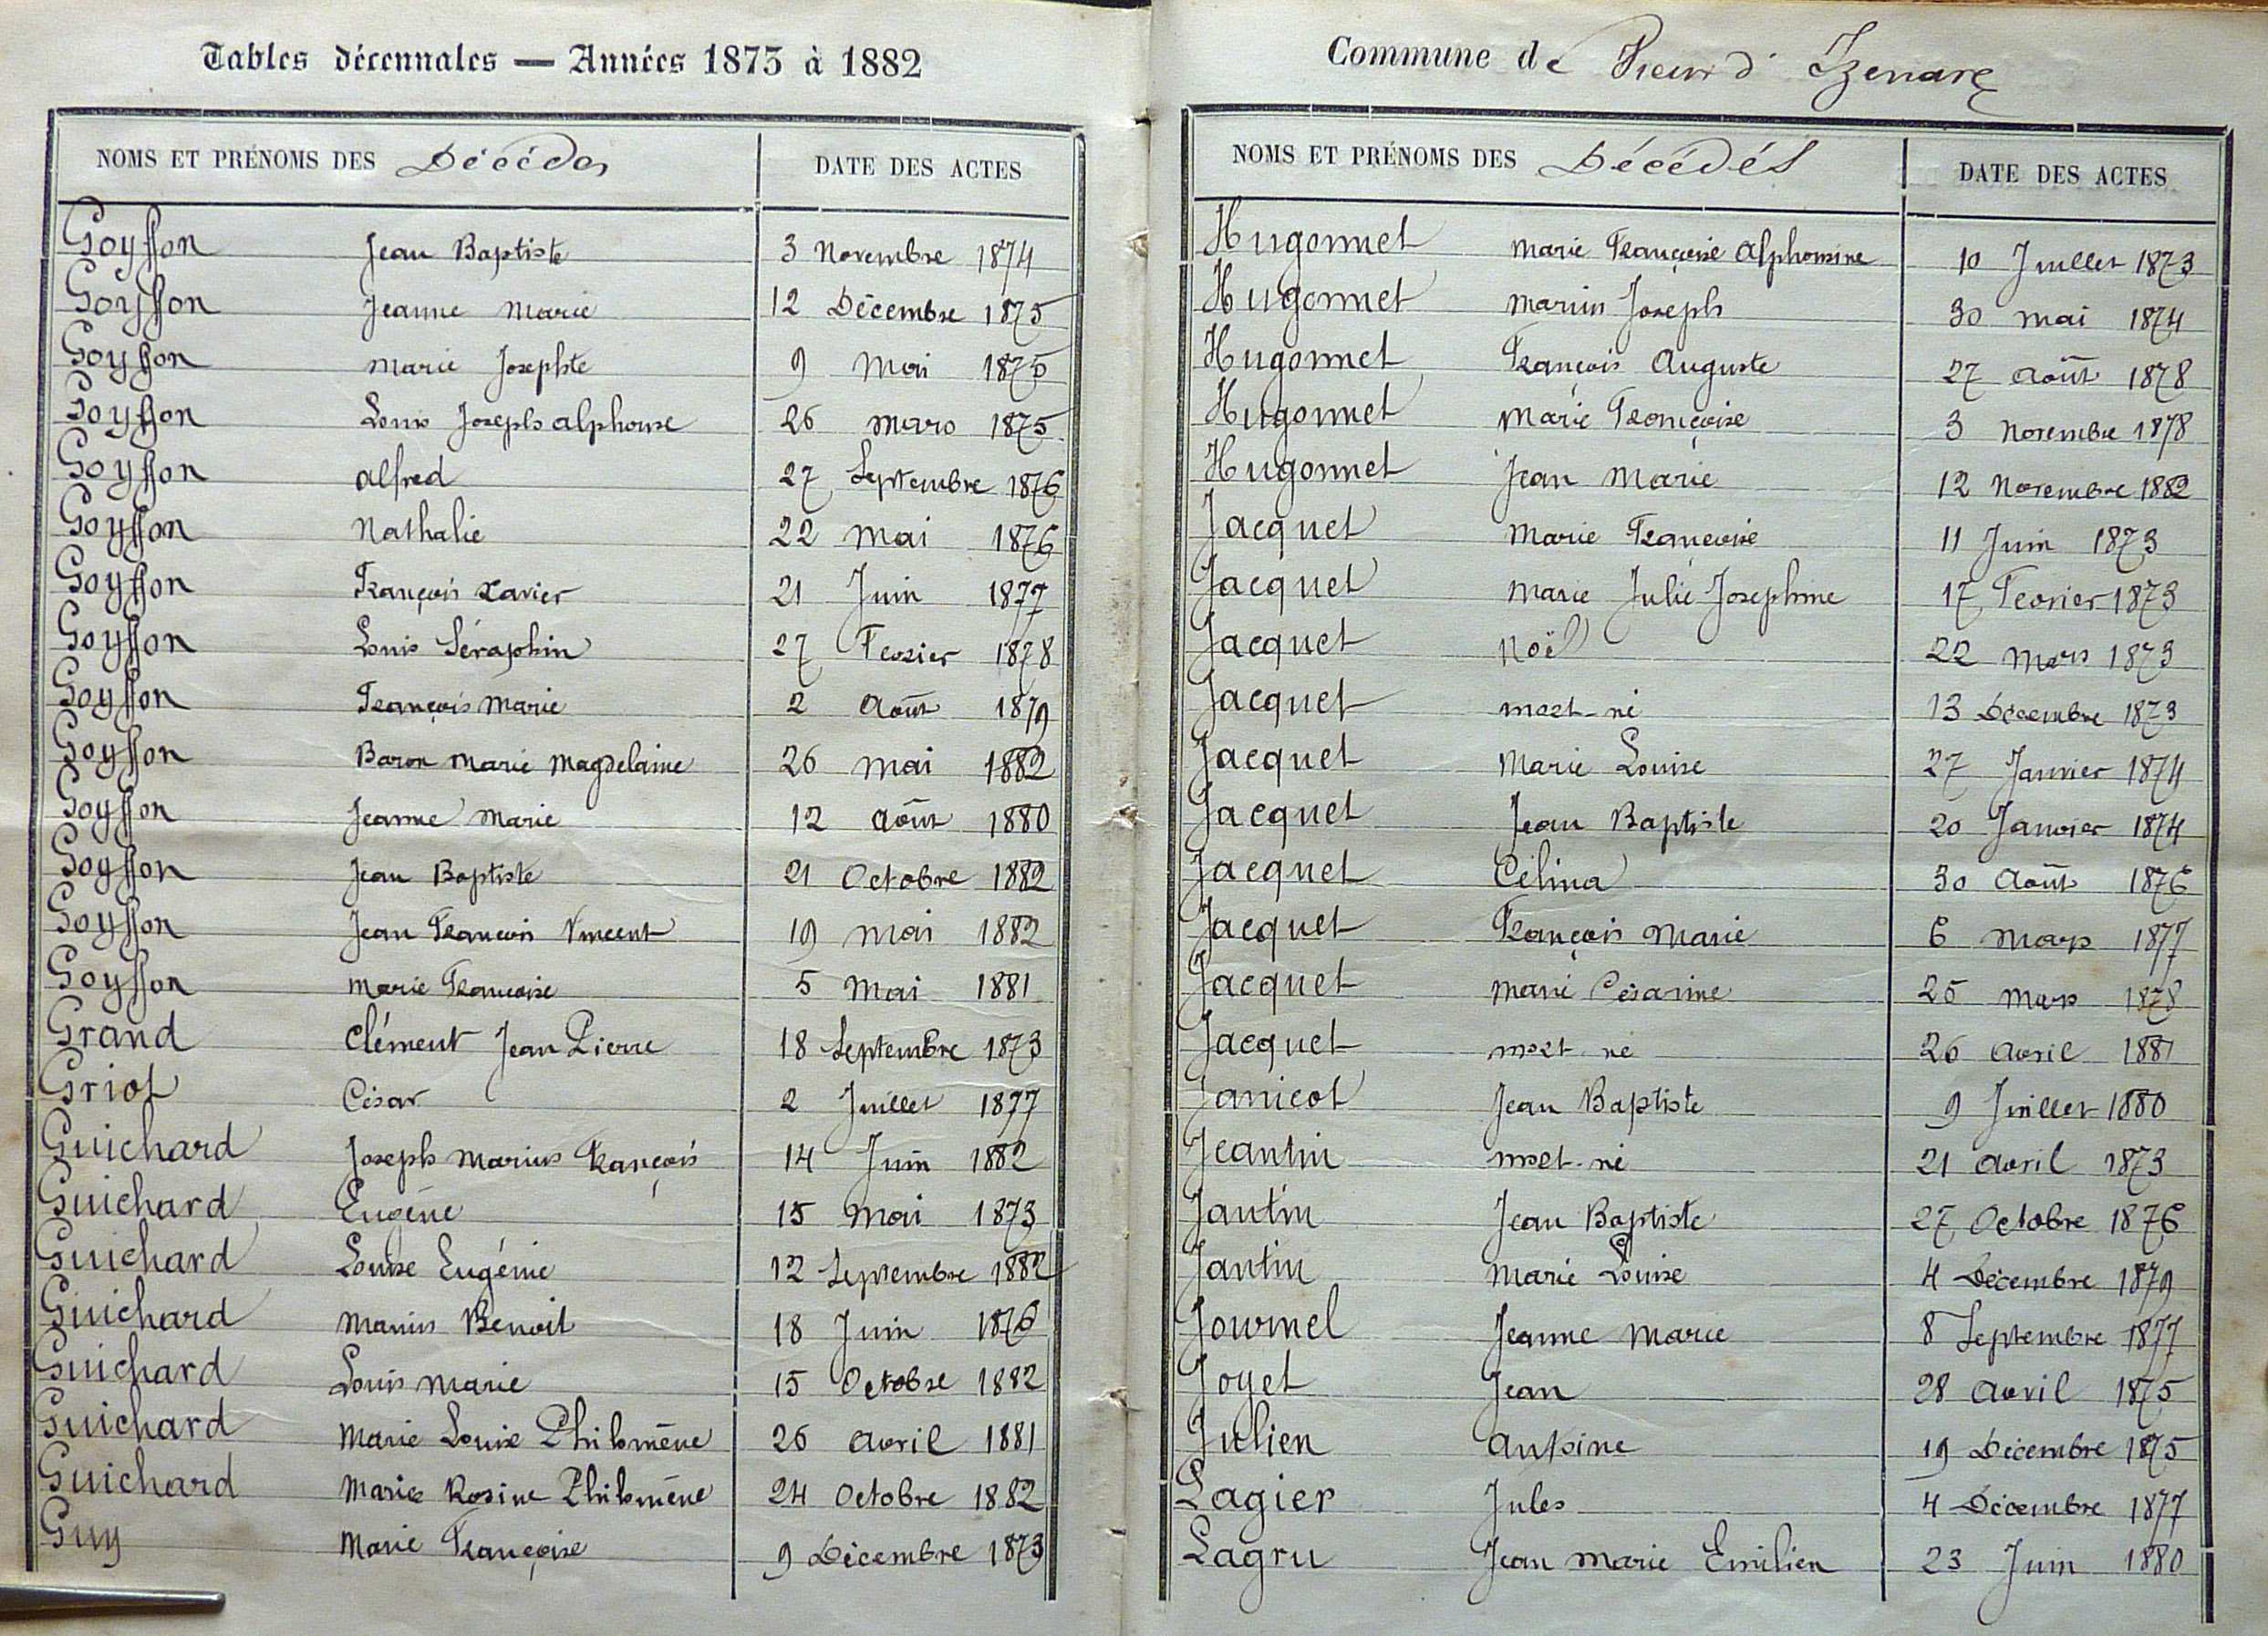 Tables décennales — Années 1873 à 1882
NOMS ET PRÉNOMS DES Décédés DATE DES ACTES
Goyffon Jean Baptiste 3 Novembre 1874
Goyffon Jeanne Marie 12 Décembre 1875
Goyffon Marie Josephte 9 Mai 1875
Goyffon Louis Joseph alphonse 26 Mars 1875
Goyffon alfred 27 Septembre 1876
Goyffon Nathalie 22 Mai 1876
Goyffon François Xavier 21 Juin 1877
Goyffon Louis Séraphin 27 Fevrier 1878
Goyffon François Marie 2 Août 1879
Goyffon Baron Marie Magdelaine 26 Mai 1882
Goyffon Jeanne Marie 12 Août 1880
Goyffon Jean Baptiste 21 Octobre 1882
Goyffon Jean François Vincent 19 Mai 1882
Goyffon Marie Francoise 5 Mai 1881
Grand Clément Jean Pierre 18 Septembre 1873
Griot César 2 Juillet 1877
Guichard Joseph Marius François 14 Juin 1882
Guichard Eugène 15 Mai 1873
Guichard Louise Eugénie 12 Septembre 1882
Guichard Marius Benoit 18 Juin 1876
Guichard Louis Marie 15 Octobre 1882
Guichard Marie Louise Philomène 26 Avril 1881
Guichard Marie Rosine Philomène 24 Octobre 1882
Guy Marie Françoise 9 Décembre 1873
Commune de Vieux d' Izenave
NOMS ET PRÉNOMS DES Décédés DATE DES ACTES
Hugonnet Marie Françoise Alphonsine 10 Juillet 1873
Hugonnet Marius Joseph 30 Mai 1874
Hugonnet François Auguste 27 Août 1878
Hugonnet Marie Françoise 3 Novembre 1878
Hugonnet Jean Marie 12 Novembre 1882
Jacquet Marie Francoise 11 Juin 1873
Jacquet Marie Julie Josephine 17 Fevrier 1873
Jacquet Noël 22 Mars 1873
Jacquet mort-né 13 Décembre 1873
Jacquet Marie Louise 27 Janvier 1874
Jacquet Jean Baptiste 20 Janvier 1874
Jacquet Célina 30 Août 1876
Jacquet François Marie 6 Mars 1877
Jacquet Marie Césarine 25 Mars 1878
Jacquet mort né 26 Avril 1881
Janicot Jean Baptiste 9 Juillet 1880
Jeantin mort-né 21 Avril 1873
Jantin Jean Baptiste 27 Octobre 1876
Jantin Marie Louise 4 Décembre 1879
Journel Jeanne Marie 8 Septembre 1877
Joyet Jean 28 Avril 1875
Julien Antoine 19 Décembre 1875
Lagier Jules 4 Décembre 1877
Lagru Jean Marie Emilien 23 Juin 1880